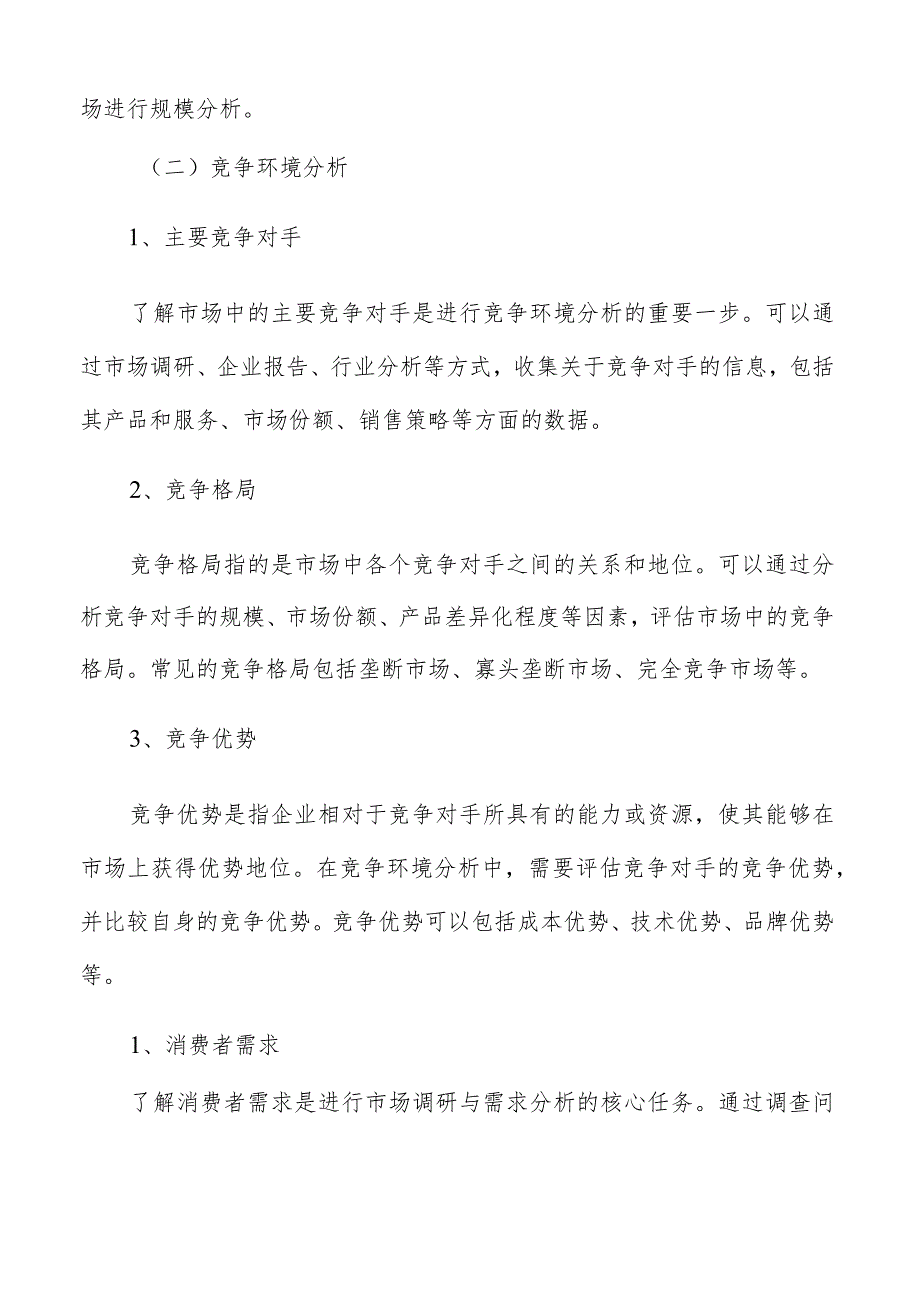 场进行规模分析。
（二）竞争环境分析
1、主要竞争对手
了解市场中的主要竞争对手是进行竞争环境分析的重要一步。可以通
过市场调研、企业报告、行业分析等方式，收集关于竞争对手的信息，包括
其产品和服务、市场份额、销售策略等方面的数据。
2、竞争格局
竞争格局指的是市场中各个竞争对手之间的关系和地位。可以通过分
析竞争对手的规模、市场份额、产品差异化程度等因素，评估市场中的竞争
格局。常见的竞争格局包括垄断市场、寡头垄断市场、完全竞争市场等。
3、竞争优势
竞争优势是指企业相对于竞争对手所具有的能力或资源，使其能够在
市场上获得优势地位。在竞争环境分析中，需要评估竞争对手的竞争优势，
并比较自身的竞争优势。竞争优势可以包括成本优势、技术优势、品牌优势
等。
1、消费者需求
了解消费者需求是进行市场调研与需求分析的核心任务。通过调查问